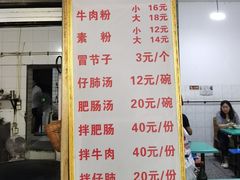 小 16元
牛肉粉
大 18元
小 12元
素 粉
大 14元
冒节子 3元/个
仔肺汤 12元/碗
肥肠汤 20元/碗
拌肥肠 40元/份
拌牛肉 40元/份
拌仔肺 20元/份